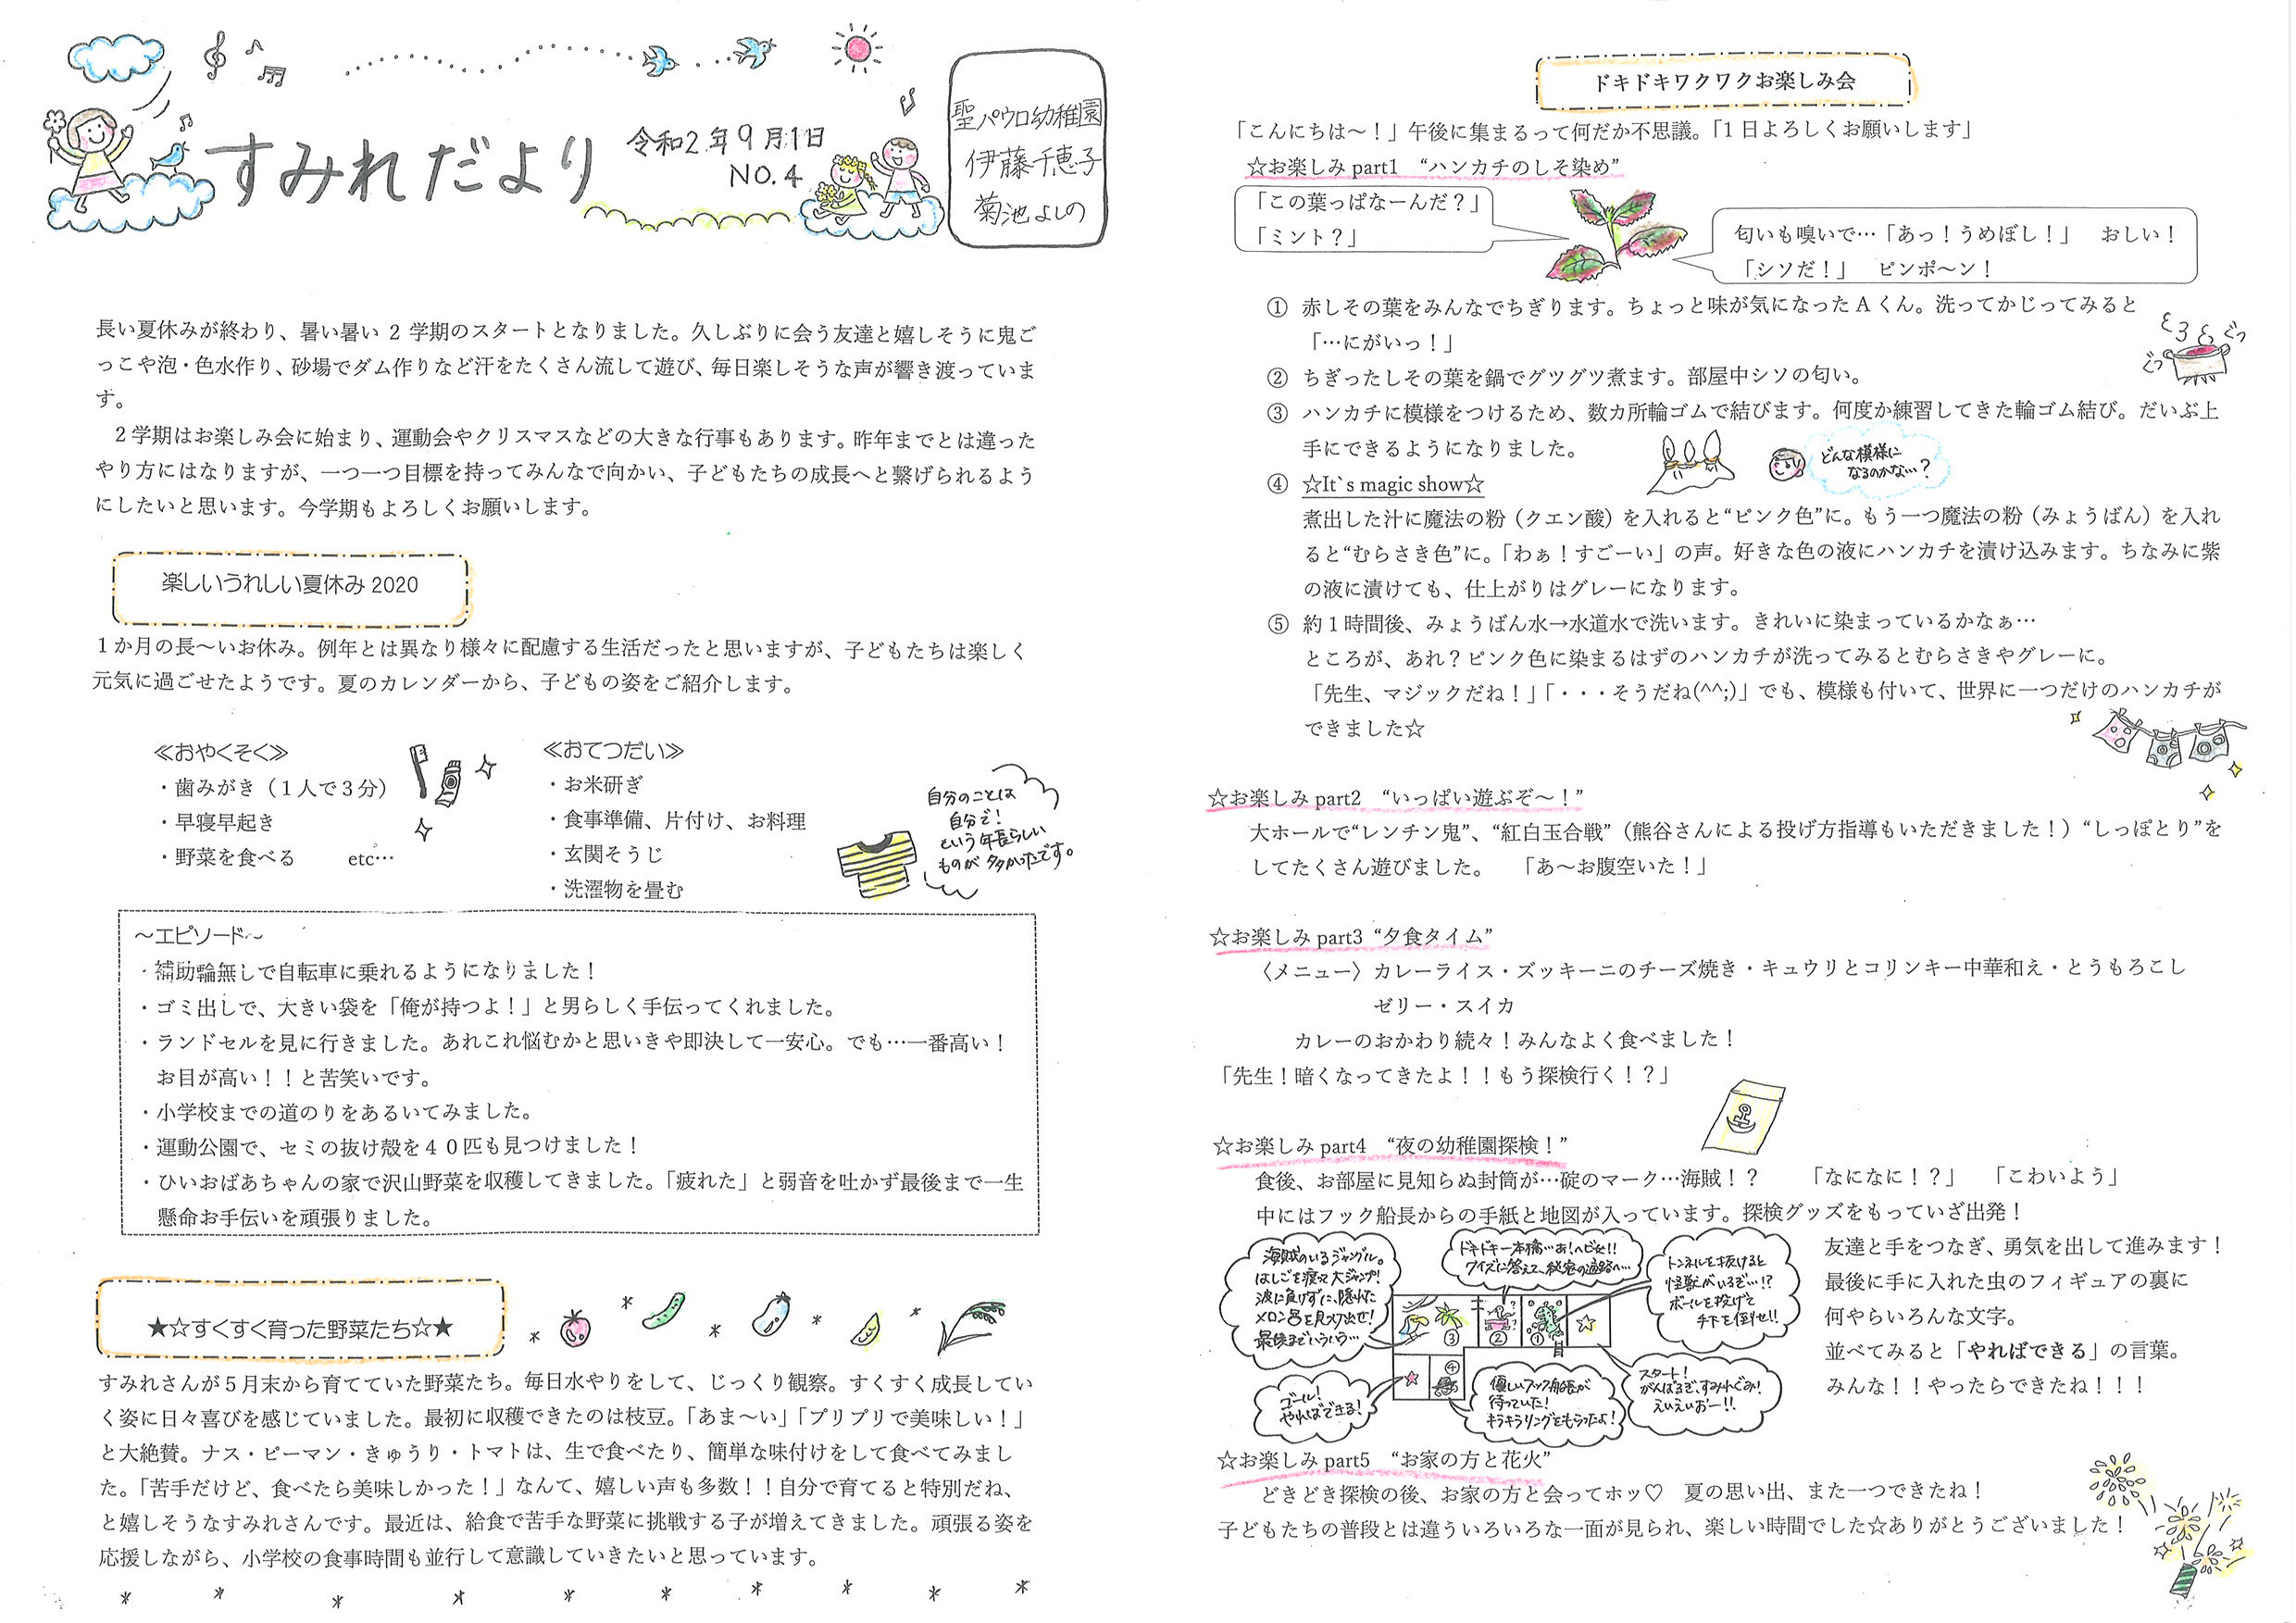 すみれだより
令和2年9月1日
NO.4
聖パウロ幼稚園
伊藤千恵子
菊池よしの
長い夏休みが終わり、暑い暑い 2 学期のスタートとなりました。久しぶりに会う友達と嬉しそうに鬼ご
っこや泡・色水作り、砂場でダム作りなど汗をたくさん流して遊び、毎日楽しそうな声が響き渡っていま
す。
2学期はお楽しみ会に始まり、運動会やクリスマスなどの大きな行事もあります。昨年までとは違った
やり方にはなりますが、一つ一つ目標を持ってみんなで向かい、子どもたちの成長へと繋げられるよう
にしたいと思います。今学期もよろしくお願いします。
楽しいうれしい夏休み 2020
1か月の長～いお休み。例年とは異なり様々に配慮する生活だったと思いますが、子どもたちは楽しく
元気に過ごせたようです。夏のカレンダーから、子どもの姿をご紹介します。
≪おやくそく≫
・歯みがき（1人で3分）
・早寝早起き
・野菜を食べる　　etc…
≪おてつだい≫
・お米研ぎ
・食事準備、片付け、お料理
・玄関そうじ
・洗濯物を畳む
自分のことは
自分で！
という年長らしい
ものが多かったです。
～エピソード～
・補助輪無しで自転車に乗れるようになりました！
・ゴミ出しで、大きい袋を「俺が持つよ！」と男らしく手伝ってくれました。
・ランドセルを見に行きました。あれこれ悩むかと思いきや即決して一安心。でも…一番高い！
お目が高い！！と苦笑いです。
・小学校までの道のりをあるいてみました。
・運動公園で、セミの抜け殻を４０匹も見つけました！
・ひいおばあちゃんの家で沢山野菜を収穫してきました。「疲れた」と弱音を吐かず最後まで一生
懸命お手伝いを頑張りました。
★☆すくすく育った野菜たち☆★
すみれさんが5月末から育てていた野菜たち。毎日水やりをして、じっくり観察。すくすく成長してい
く姿に日々喜びを感じていました。最初に収穫できたのは枝豆。「あま～い」「プリプリで美味しい！」
と大絶賛。ナス・ピーマン・きゅうり・トマトは、生で食べたり、簡単な味付けをして食べてみまし
た。「苦手だけど、食べたら美味しかった！」なんて、嬉しい声も多数！！自分で育てると特別だね、
と嬉しそうなすみれさんです。最近は、給食で苦手な野菜に挑戦する子が増えてきました。頑張る姿を
応援しながら、小学校の食事時間も並行して意識していきたいと思っています。
ドキドキワクワクお楽しみ会
「こんにちは～！」午後に集まるって何だか不思議。「1日よろしくお願いします」
☆お楽しみ part1　“ハンカチのしそ染め”
「この葉っぱなーんだ？」
「ミント？」
匂いも嗅いで…「あっ！うめぼし！」　おしい！
「シソだ！」　ピンポ～ン！
① 赤しその葉をみんなでちぎります。ちょっと味が気になったAくん。洗ってかじってみると
「…にがいっ！」
ぐつ
ぐつ
② ちぎったしその葉を鍋でグツグツ煮ます。部屋中シソの匂い。
③ ハンカチに模様をつけるため、数カ所輪ゴムで結びます。何度か練習してきた輪ゴム結び。だいぶ上
手にできるようになりました。
どんな模様に
なるのかな…？
④ ☆It`s magic show☆
煮出した汁に魔法の粉（クエン酸）を入れると“ピンク色”に。もう一つ魔法の粉（みょうばん）を入れ
ると“むらさき色”に。「わぁ！すごーい」の声。好きな色の液にハンカチを漬け込みます。ちなみに紫
の液に漬けても、仕上がりはグレーになります。
⑤ 約1時間後、みょうばん水→水道水で洗います。きれいに染まっているかなぁ…
ところが、あれ？ピンク色に染まるはずのハンカチが洗ってみるとむらさきやグレーに。
「先生、マジックだね！」「・・・そうだね(^^;)」でも、模様も付いて、世界に一つだけのハンカチが
できました☆
☆お楽しみ part2　“いっぱい遊ぶぞ～！”
大ホールで“レンチン鬼”、“紅白玉合戦”（熊谷さんによる投げ方指導もいただきました！）“しっぽとり”を
してたくさん遊びました。　「あ～お腹空いた！」
☆お楽しみ part3 “夕食タイム”
〈メニュー〉カレーライス・ズッキーニのチーズ焼き・キュウリとコリンキー中華和え・とうもろこし
ゼリー・スイカ
カレーのおかわり続々！みんなよく食べました！
「先生！暗くなってきたよ！！もう探検行く！？」
☆お楽しみ part4　“夜の幼稚園探検！”
食後、お部屋に見知らぬ封筒が…碇のマーク…海賊！？　「なになに！？」　「こわいよう」
中にはフック船長からの手紙と地図が入っています。探検グッズをもっていざ出発！
海賊のいるジャングル。
はしごを渡って大ジャンプ！
波に負けずに、隠れた
メロン号を見つけ出せ！
最後まで
ドキドキ一本橋…あ！ヘビ女!!
クイズに答えて、秘密の通路へ…
トンネルを抜けると
怪獣がいるぞ…!?
ボールを投げて
手下を倒せ!!
③
②
①
④
ゴール！
やればできる！
優しいフック船長が
待っていた！
キラキラリングをもらったよ！
スタート！
がんばるぞ、すみれぐみ！
えいえいおー!!
友達と手をつなぎ、勇気を出して進みます！
最後に手に入れた虫のフィギュアの裏に
何やらいろんな文字。
並べてみると「やればできる」の言葉。
みんな！！やったらできたね！！！
☆お楽しみ part5　“お家の方と花火”
どきどき探検の後、お家の方と会ってホッ♡　夏の思い出、また一つできたね！
子どもたちの普段とは違ういろいろな一面が見られ、楽しい時間でした☆ありがとうございました！